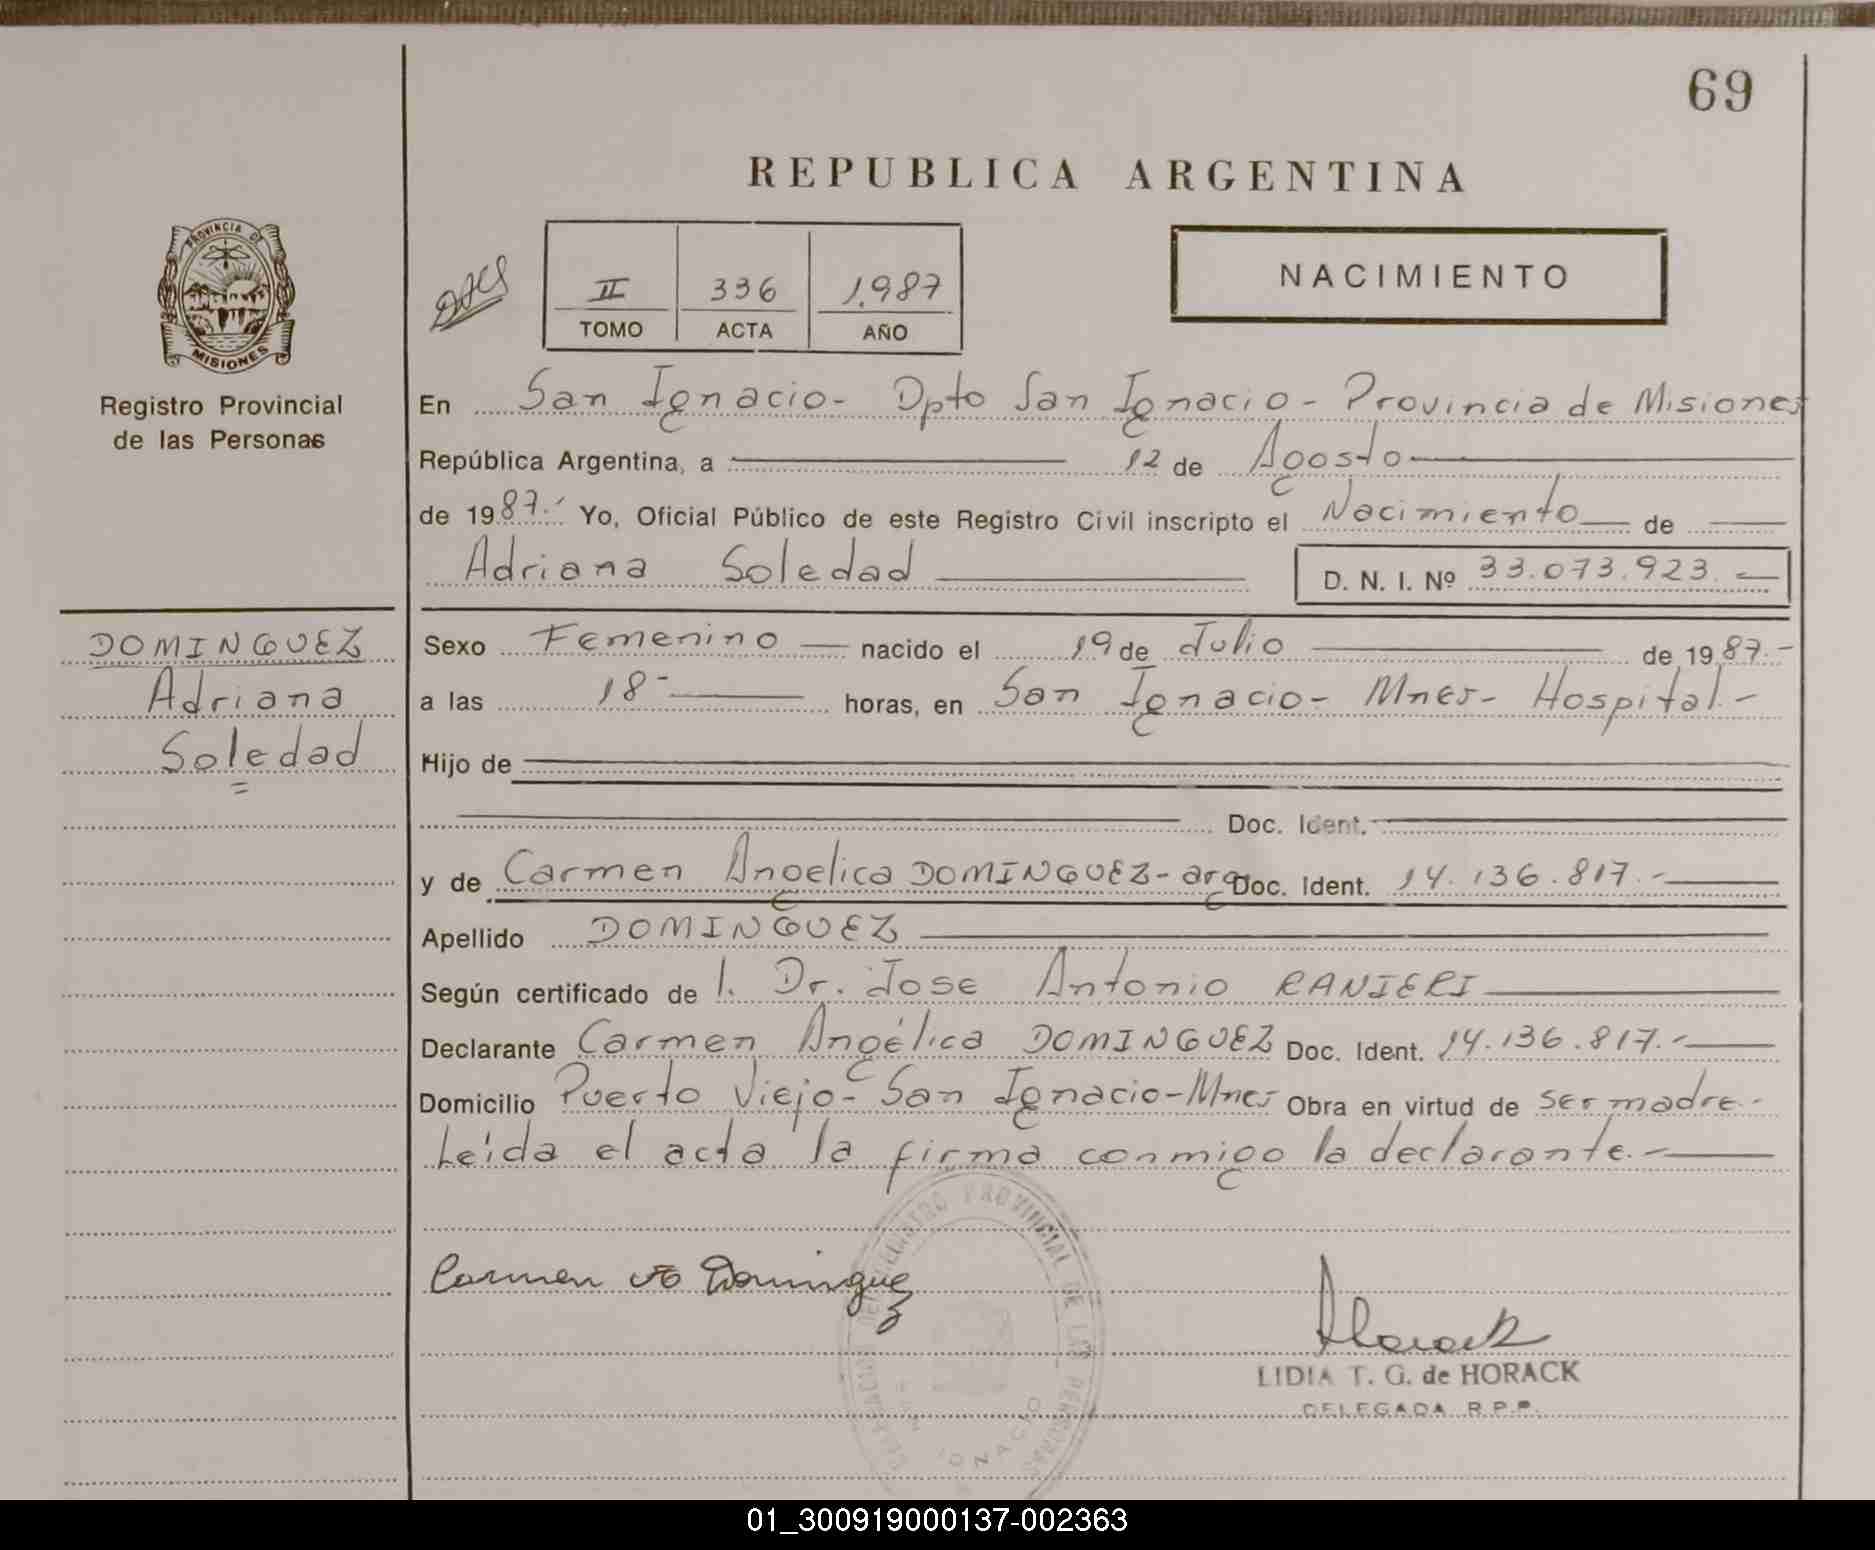 69
REPUBLICA ARGENTINA
PROVINCIA DE
MISIONES
Registro Provincial
de las Personas
II 336 1.987
TOMO ACTA AÑO
NACIMIENTO
En San Ignacio - Dpto San Ignacio - Provincia de Misiones
República Argentina, a 12 de Agosto
de 1987.- Yo, Oficial Público de este Registro Civil inscripto el Nacimiento de
Adriana Soledad D. N. I. Nº 33.073.923.-
DOMINGUEZ
Adriana
Soledad
Sexo Femenino nacido el 19 de Julio de 1987.-
a las 18- horas, en San Ignacio - Mnes - Hospital.-
Hijo de
Doc. Ident.
y de Carmen Angelica DOMINGUEZ - arg Doc. Ident. 14.136.817.-
Apellido DOMINGUEZ
Según certificado de l. Dr. Jose Antonio RANIERI
Declarante Carmen Angélica DOMINGUEZ Doc. Ident. 14.136.817.-
Domicilio Puerto Viejo - San Ignacio - Mnes Obra en virtud de ser madre.-
Leida el acta la firma conmigo la declarante.-
Carmen A Dominguez
REGISTRO PROVINCIAL DE LAS PERSONAS
IGNACIO
Horack
LIDIA T. G. de HORACK
DELEGADA R.P.P.
01_300919000137-002363